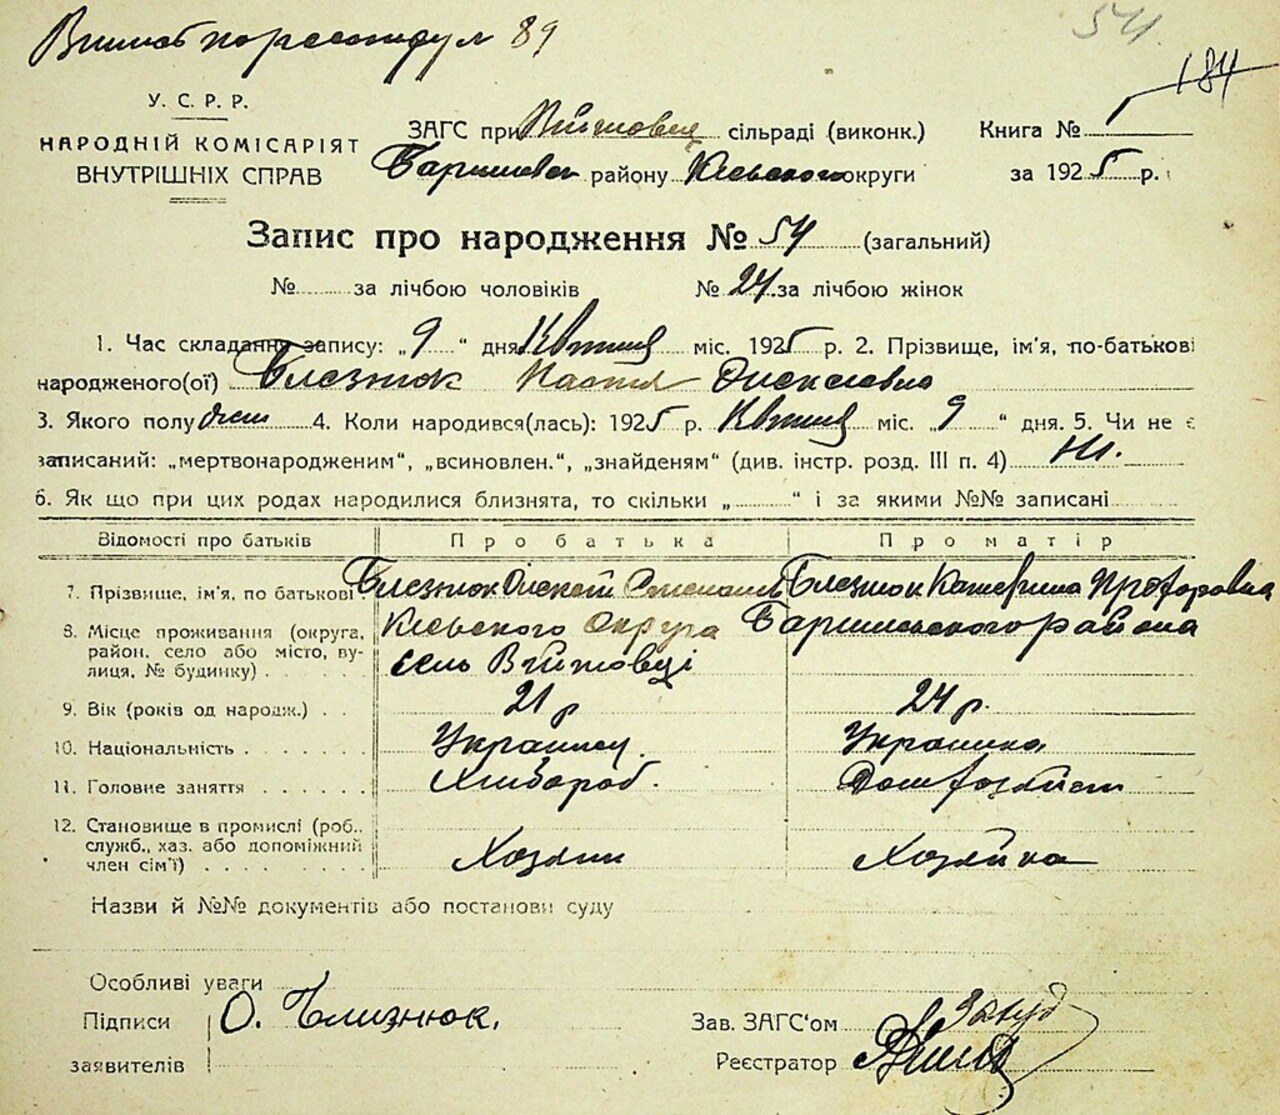 89
54
184
У. С. Р. Р.
НАРОДНІЙ КОМІСАРІЯТ
ВНУТРІШНІХ СПРАВ
ЗАГС при Війтовец сільраді (виконк.)
Баришевск району Київського округи
Книга № 1
за 1925 р.
Запис про народження № 54 (загальний)
№ за лічбою чоловіків № 24 за лічбою жінок
1. Час складання запису: „9" дня Квітня міс. 1925 р. 2. Прізвище, ім'я, по-батькові
народженого(ої) Блезнюк Настя Олексіевна
3. Якого полу жін 4. Коли народився(лась): 1925 р. Квітня міс. „9" дня. 5. Чи не є
записаний: „мертвонародженим", „всиновлен.", „знайденям" (див. інстр. розд. III п. 4) Ні.
6. Як що при цих родах народилися близнята, то скільки „ " і за якими №№ записані
Відомості про батьків Про батька Про матір
7. Прізвище, ім'я, по батькові Блезнюк Олексій Степанов Блезнюк Катерина Прохоровна
8. Місце проживання (округа, район, село або місто, вулиця, № будинку) Київського Округа Баришивського района
село Війтовці
9. Вік (років од народж.) 21 р 24 р.
10. Національність Українец. Українка
11. Головне заняття Хлібороб. Домхозяйст
12. Становище в промислі (роб., служб., хаз. або допоміжний член сім'ї) Хозяин Хозяйка
Назви й №№ документів або постанови суду
Особливі уваги
Підписи О. Близнюк.
заявителів
Зав. ЗАГС'ом
Реєстратор